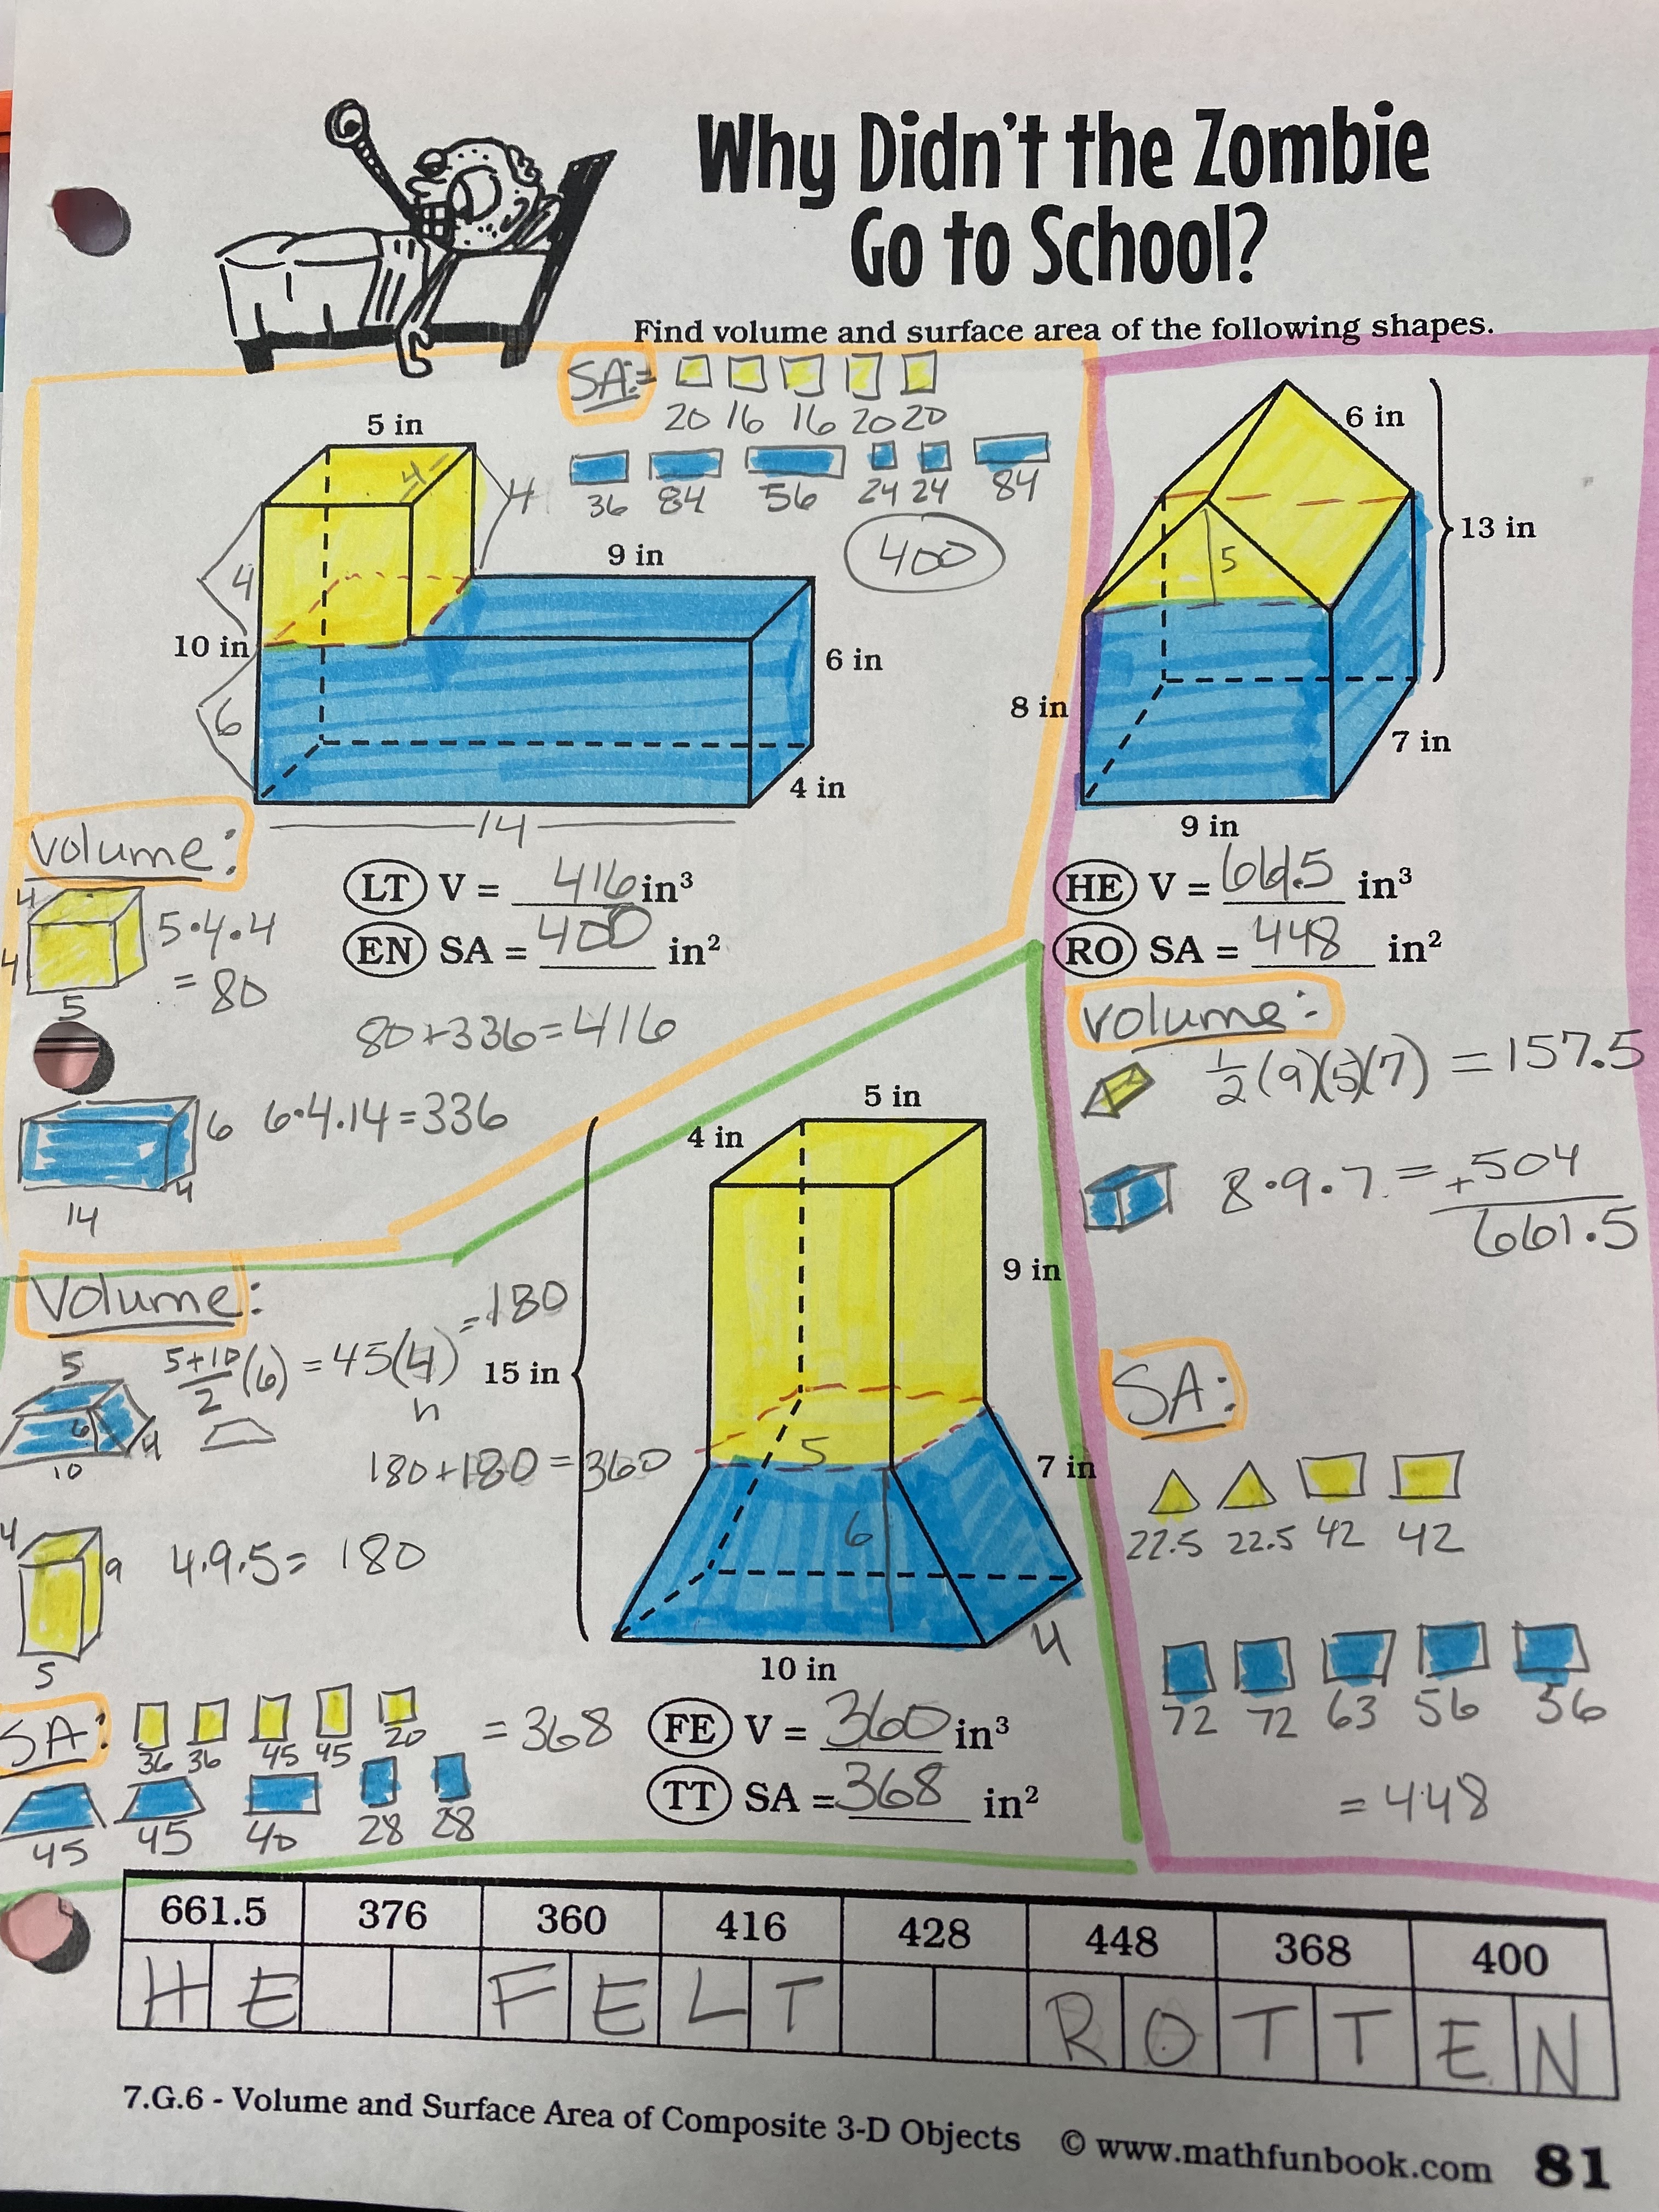 Why Didn't the Zombie
Go to School?
Find volume and surface area of the following shapes.
SA:=
20 16 16 20 20
36 84 56 24 24 84
400
5 in
4
4
9 in
4
10 in
6 in
6
4 in
14
volume:
LT V = 416 in³
EN SA = 400 in²
4
4
5
5·4·4
= 80
80+336=416
6
4
14
6·4·14=336
6 in
13 in
5
8 in
7 in
9 in
HE V = 661.5 in³
RO SA = 448 in²
volume:
1/2 (9)(5)(7) = 157.5
8·9·7 = +504
661.5
SA:
22.5 22.5 42 42
72 72 63 56 56
= 448
5 in
4 in
9 in
15 in
5
7 in
6
4
10 in
Volume:
5
6
4
10
5+10/2 (6) = 45(4) = 180
h
180+180=360
4
9
5
4·9·5= 180
SA:
36 36 45 45 20
= 368
45 45 40 28 28
FE V = 360 in³
TT SA = 368 in²
661.5 376 360 416 428 448 368 400
H E F E L T R O T T E N
7.G.6 - Volume and Surface Area of Composite 3-D Objects © www.mathfunbook.com 81